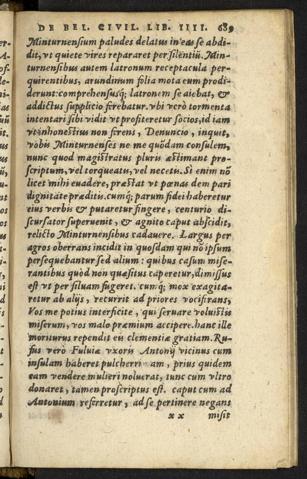 DE BEL. CIVIL. LIB. IIII. 689
Minturnensium paludes delatus in eas se abdi-
dit, vt quiete vires repararet per silentiũ. Min-
turnensibus autem latronum receptacula per-
quirentibus, arundinum folia mota eum prodi-
derunt: comprehensusq; latronem se aiebat, &
addictus supplicio ferebatur. vbi verò tormenta
intentari sibi vidit vt profiteretur socios, id iam
vt inhonestius non ferens, Denuncio, inquit,
vobis Minturnenses me me quõdam consulem,
nunc quod magistratus pluris æstimant pro-
scriptum, vel torqueatis, vel necetis. Si enim nõ
licet mihi euadere, præstat vt pœnas dem pari
dignitate præditis. cumq; parum fidei haberetur
eius verbis & putaretur fingere, centurio di-
scursator superuenit, & agnito caput abscidit,
relicto Minturnensibus cadauere. Largus per
agros oberrans incidit in quosdam qui nõ ipsum
persequebantur sed alium: quibus casum mise-
rantibus quòd non quæsitus caperetur, dimissus
est vt per siluam fugeret. cumq; mox exagita-
retur ab alijs, recurrit ad priores vociferans,
Vos me potius interficite, qui seruare voluistis
miserum, vos malo præmium accipere. hanc ille
moriturus rependit eis clementiæ gratiam. Ru-
fus verò Fuluiæ vxoris Antonij vicinus cum
insulam haberet pulcherri am, prius quidem
eam vendere mulieri noluerat, tunc cum vltro
donaret, tamen proscriptus est. caput cum ad
Antonium referretur, ad se pertinere negans
xx misit